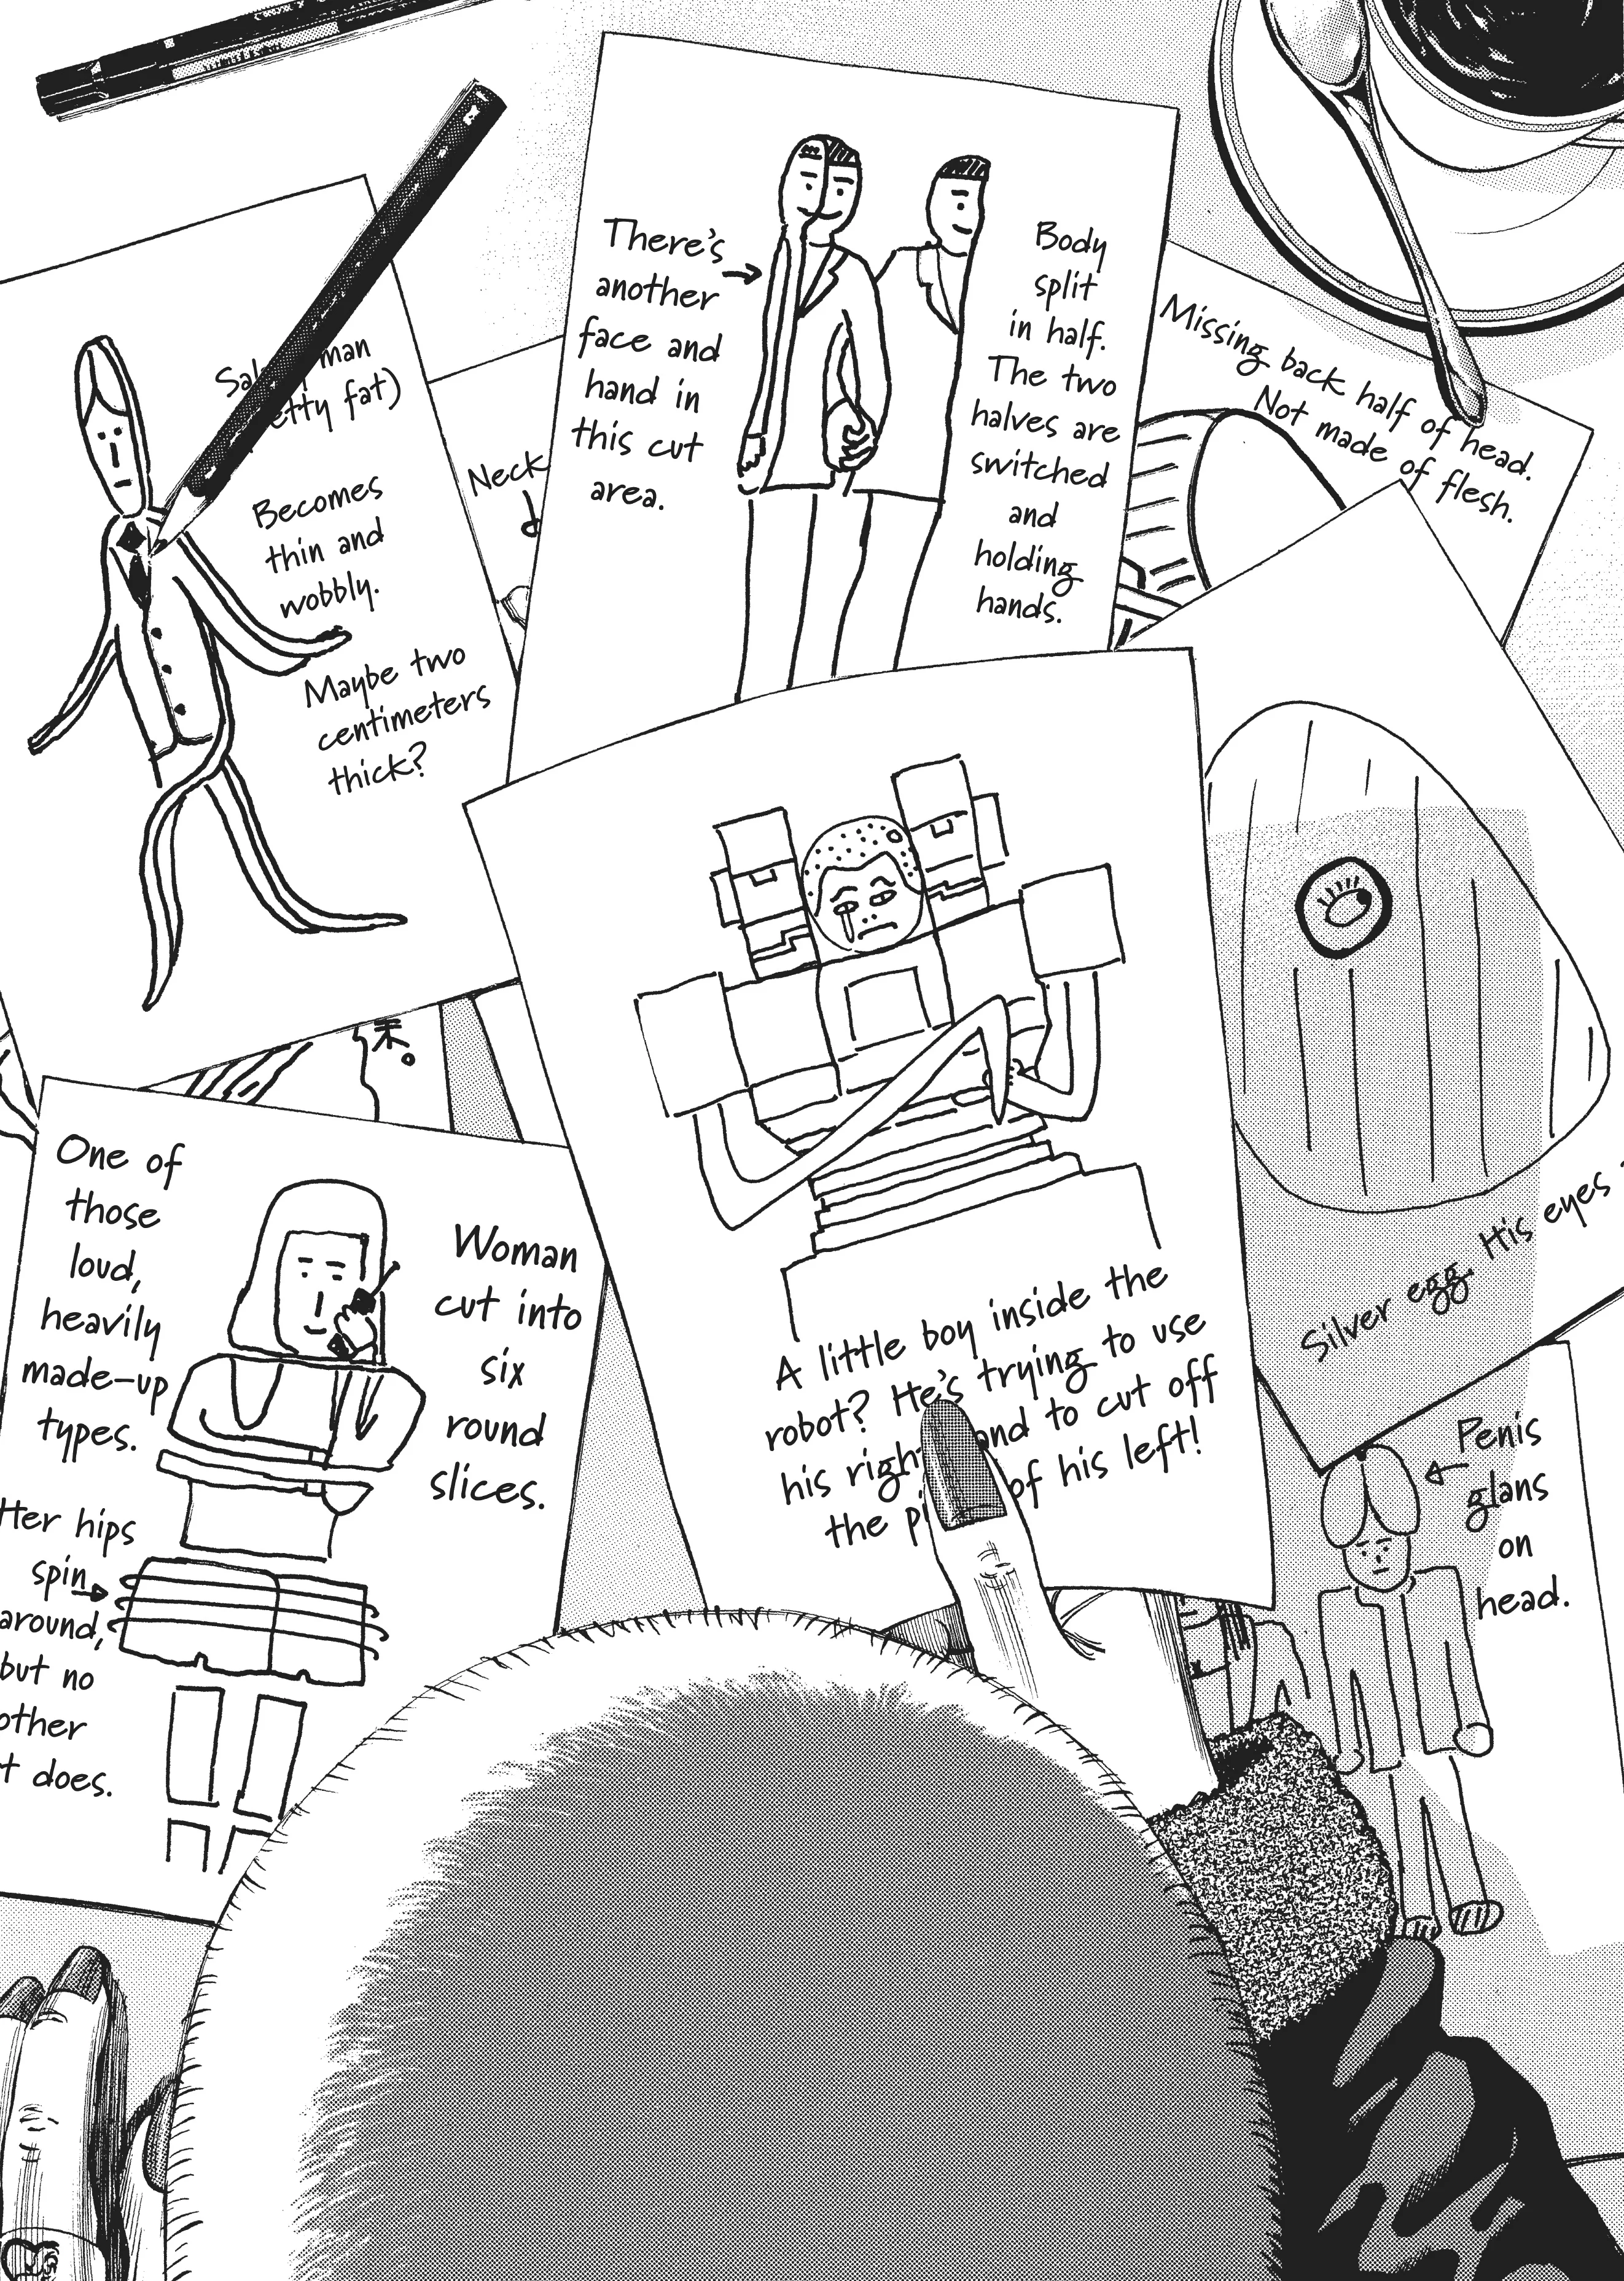 There's
another
face and
hand in
this cut
area.
Body
split
in half.
The two
halves are
switched
and
holding
hands.
Missing back half of head.
Not made of flesh.
man
fat)
Becomes
thin and
wobbly.
Maybe two
centimeters
thick?
Neck
A little boy inside the
robot? He's trying to use
his right to cut off
the of his left!
Silver egg. His eyes
末。
One of
those
loud,
heavily
made-up
types.
Woman
cut into
six
round
slices.
Her hips
spin
around,
but no
other
does.
Penis
glans
on
head.